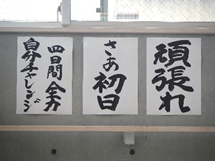 頑張れ
さあ初日
四日間全力
チャレンジ